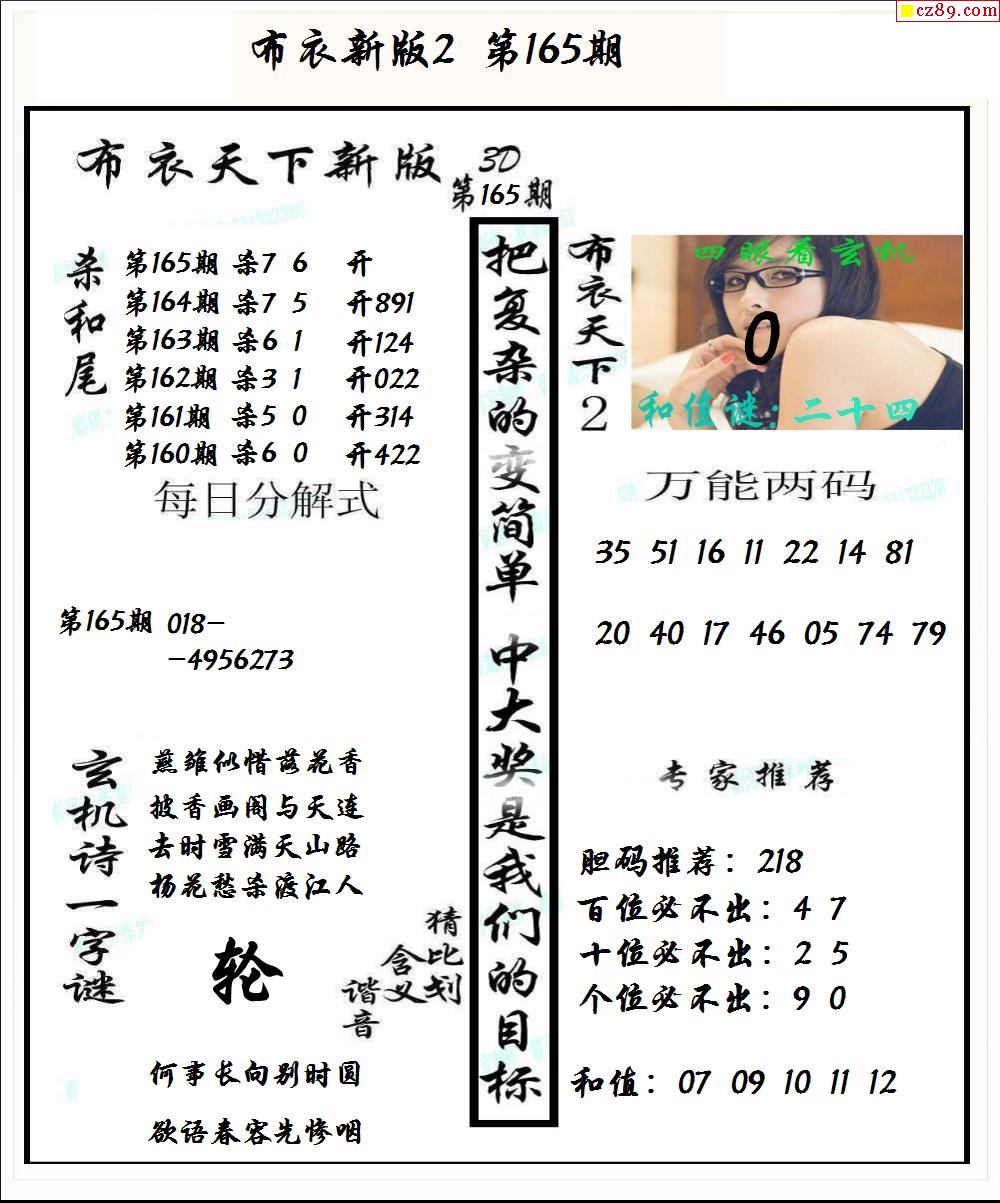 cz89.com
布衣新版2 第165期
布衣天下新版
3D
第165期
杀和尾
第165期 杀7 6 开
第164期 杀7 5 开891
第163期 杀6 1 开124
第162期 杀3 1 开022
第161期 杀5 0 开314
第160期 杀6 0 开422
每日分解式
第165期 018-
-4956273
玄机诗一字谜
燕雏似惜落花香
披香画阁与天连
去时雪满天山路
杨花愁杀渡江人
轮
猜比划
含义
谐音
何事长向别时圆
欲语春容先惨咽
把复杂的变简单 中大奖是我们的目标
布衣天下2
四眼看玄机
0
和值谜:二十四
万能两码
35 51 16 11 22 14 81
20 40 17 46 05 74 79
专家推荐
胆码推荐：218
百位必不出：4 7
十位必不出：2 5
个位必不出：9 0
和值：07 09 10 11 12